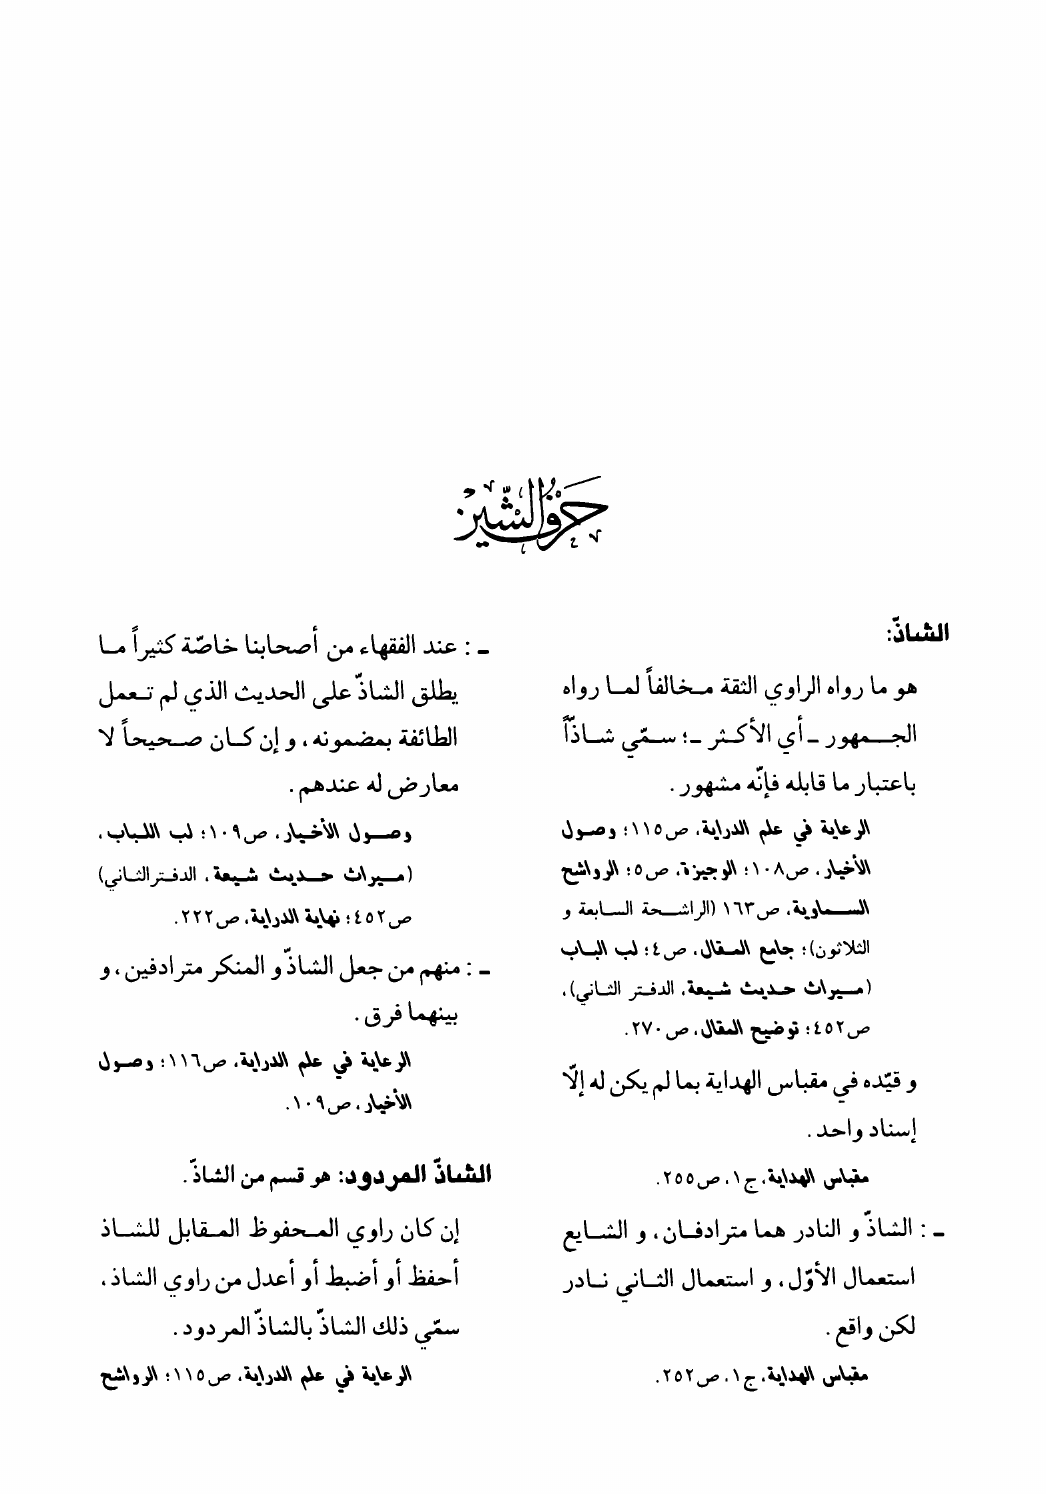 حَرْفُ الشّين
الشاذّ:
هو ما رواه الراوي الثقة مخالفاً لما رواه
الجمهور ـ أي الأكثر ـ؛ سمّي شاذّاً
باعتبار ما قابله فإنّه مشهور.
الرعاية في علم الدراية، ص١١٥؛ وصول
الأخيار، ص١٠٨؛ الوجيزة، ص٥؛ الرواشح
السماوية، ص١٦٣ (الراشحة السابعة و
الثلاثون)؛ جامع المقال، ص٤؛ لب الباب
(ميراث حديث شيعة، الدفتر الثاني)،
ص٤٥٢؛ توضيح المقال، ص٢٧٠.
و قيّده في مقباس الهداية بما لم يكن له إلّا
إسناد واحد.
مقباس الهداية، ج١، ص٢٥٥.
ـ : الشاذّ و النادر هما مترادفان، و الشايع
استعمال الأوّل، و استعمال الثاني نادر
لكن واقع.
مقباس الهداية، ج١، ص٢٥٢.
ـ : عند الفقهاء من أصحابنا خاصّة كثيراً ما
يطلق الشاذّ على الحديث الذي لم تعمل
الطائفة بمضمونه، و إن كان صحيحاً لا
معارض له عندهم.
وصول الأخيار، ص١٠٩؛ لب اللباب،
(ميراث حديث شيعة، الدفتر الثاني)
ص٤٥٢؛ نهاية الدراية، ص٢٢٢.
ـ : منهم من جعل الشاذّ و المنكر مترادفين، و
بينهما فرق.
الرعاية في علم الدراية، ص١١٦؛ وصول
الأخيار، ص١٠٩.
الشاذّ المردود: هو قسم من الشاذّ.
إن كان راوي المحفوظ المقابل للشاذ
أحفظ أو أضبط أو أعدل من راوي الشاذ،
سمّي ذلك الشاذّ بالشاذّ المردود.
الرعاية في علم الدراية، ص١١٥؛ الرواشح